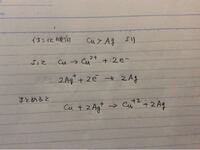 イオン化傾向 Cu > Ag より
よって Cu → Cu²⁺ + 2e⁻
2Ag⁺ + 2e⁻ → 2Ag
まとめると
Cu + 2Ag⁺ → Cu⁺² + 2Ag